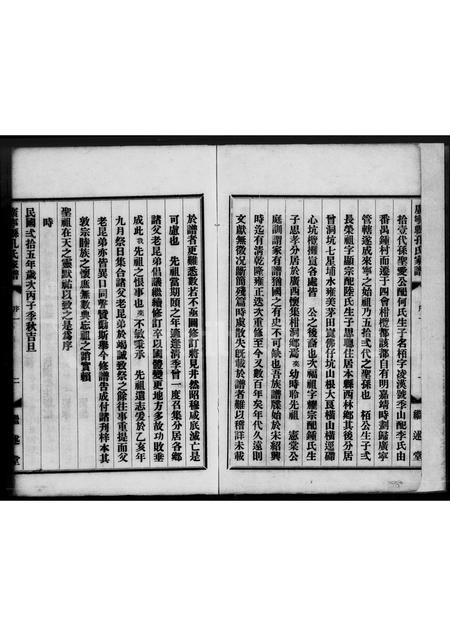 廣寧縣孔氏家譜 序 一 繼述堂
拾壹代孫聖愛公配何氏生子名栢字凌漢號季山配李氏由
番禺鍾村而遷于四會柑欖都該都自有明嘉靖時劃歸廣寧
管轄遂成來寧之始祖乃五拾弍代之聖孫也 栢公生子弍
長榮祖字顯宗配陸氏生子思聰住居本縣西林鄉其後分居
曾洞坑七星埔水雍美茅田崀佛仔坑山根大良橫山橫逕礤
心坑欖攡崀各處皆 公之後裔也次福祖字耀宗配鍾氏生
子思孝分居於廣西懷集柑洞鄉焉 幼時聆先祖 憲棠公
庭訓謂家有譜猶國之有史不可缺也吾族譜牒始於宋紹興
時迄有清乾隆雍正迭次重修至今又數百年矣年代久遠則
文獻無徵况斷簡殘篇時處散失旣載於譜者難以稽詳未載
於譜者更難悉數若不亟圖修訂將見井然昭穆咸底滅亡是
可慮也 先祖當期頤之年溯遜清季曾一度召集分居各鄉
諸父老昆弟倡議繼續修訂卒以國體變更地方多故功敗垂
成此 先祖之恨事也 不敏秉承 先祖遺志爰於乙亥年
九月祭日集合諸父老昆弟於竭誠致祭之餘往事重提而父
老昆弟亦皆異口同聲贊勷斯舉今修譜告成付諸刋梓本其
敦宗睦族之懷應無數典忘祖之誚實賴
聖祖在天之靈默祐以致之是爲序
時
民國弍拾五年歲次丙子季秋吉旦
廣寧縣孔氏家譜 序 二 繼述堂